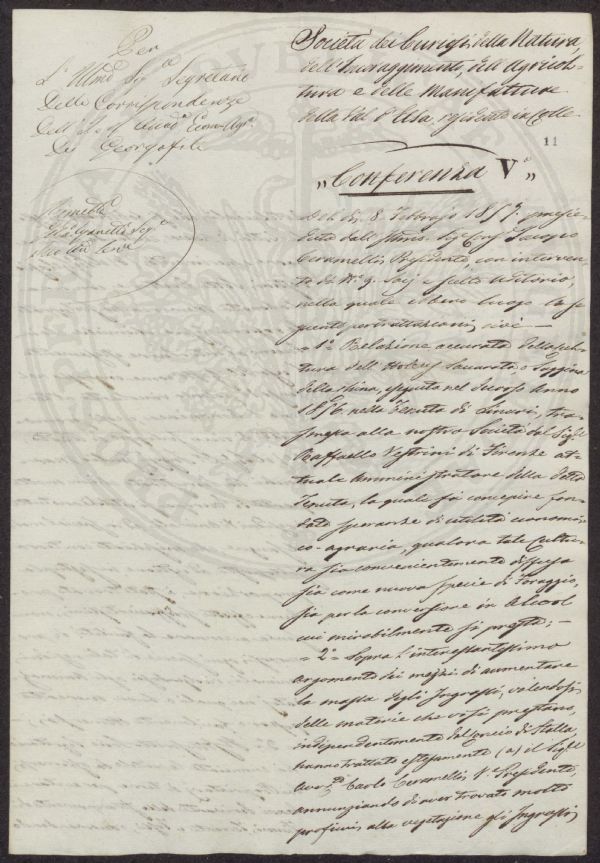 Per
L'Illmo Sigr Segretario
Delle Corrispondenze
Dell'
Dei Georgofili
Società dei Curiosi della Natura,
dell'Incoraggimento, dell'Agricol-
tura e delle Manifatture
della Val d'Elsa residente in Colle
11
"Conferenza Va"
Del dì 8. Febbrajo 1857. presie-
duta dall'Illmo. Sigr Cavr Jacopo
Ceramelli, Presidente con interven-
to di No 9. Socj e scelto Uditorio,
nella quale ebbero luogo le se-
guenti pertrattazioni, cioè —
= 1o Relazione accurata della cul-
tura dell'Holcus Saccarato o Saggina
della China, eseguita nel decorso Anno
1856. nella Tenuta di Linari, tra-
smessa alla nostra Società dal Sigr
Raffaello Vestrini di Firenze at-
tuale Amministratore della detta
Tenuta, la quale fa concepire fon-
date speranze di utilità economi-
co-agraria, qualora tale Cultu-
ra sia convenientemente diffusa
sia come nuova specie di Foraggio,
sia per la conversione in Alcool
cui mirabilmente si presta: —
= 2o Sopra l'interessantissimo
argomento dei mezzi di aumentare
la massa degli Ingrassi, valendosi
delle materie che vi si prestano,
indipendentemente dal concio di Stalla,
hanno trattato estesamente (a) il Sigr
Avvo Carlo Ceramelli Ve Presidente,
annunziando di aver trovato molto
proficui alla vegetazione gli Ingrassi